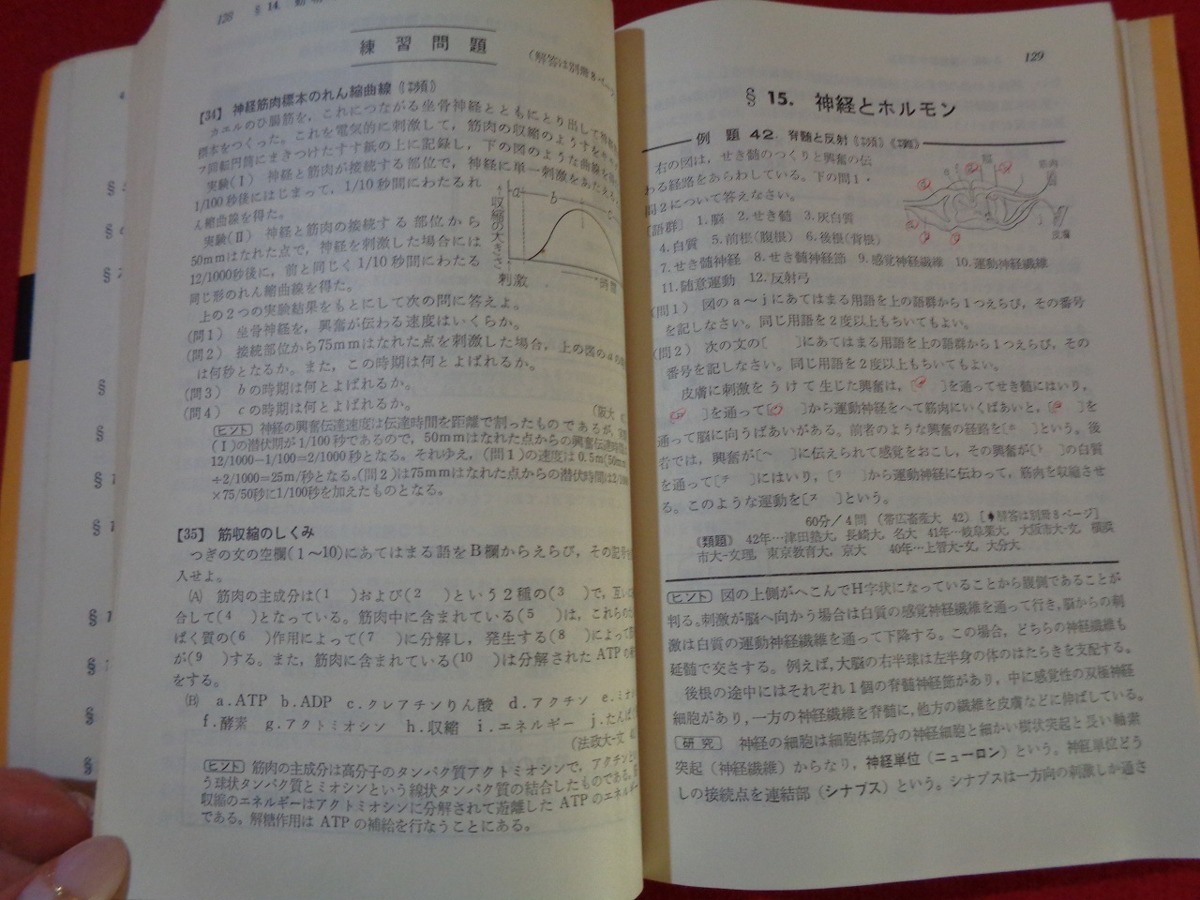 128
§ 14.
練習問題
(解答は別冊8ページ
【34】 神経筋肉標本のれん縮曲線
カエルのひ腸筋を，これにつながる坐骨神経とともにとり出して神経
標本をつくった。これを電気的に刺激して，筋肉の収縮のようすを
フ回転円筒にまきつけたすす紙の上に記録し，下の図のような曲線を
実験(Ⅰ) 神経と筋肉が接続する部位で，神経に単一刺激をあたえ
1/100秒後にはじまって，1/10秒間にわたるれ
ん縮曲線を得た。
実験(Ⅱ) 神経と筋肉の接続する部位から
50mmはなれた点で，神経を刺激した場合には
12/1000秒後に，前と同じく1/10秒間にわたる
同じ形のれん縮曲線を得た。
収縮の大きさ
a b c
刺激 時間
上の2つの実験結果をもとにして次の問に答えよ。
(問1) 坐骨神経を，興奮が伝わる速度はいくらか。
(問2) 接続部位から75mmはなれた点を刺激した場合，上の図のaの
は何秒となるか。また，この時期は何とよばれるか。
(問3) bの時期は何とよばれるか。
(問4) cの時期は何とよばれるか。
(阪大
ヒント 神経の興奮伝達速度は伝達時間を距離で割ったものであるが，
(Ⅰ)の潜伏期が1/100秒であるので，50mmはなれた点からの興奮伝達時
12/1000−1/100=2/1000秒となる。それゆえ，(問1)の速度は0.5m(50mm
÷2/1000=25m/秒となる。(問2)は75mmはなれた点からの潜伏時間は2/
×75/50秒に1/100秒を加えたものとなる。
【35】 筋収縮のしくみ
つぎの文の空欄(1〜10)にあてはまる語をB欄からえらび，その記号
入せよ。
(A) 筋肉の主成分は(1 )および(2 )という2種の(3 )で，互い
合して(4 )となっている。筋肉中に含まれている(5 )は，これらの
ぱく質の(6 )作用によって(7 )に分解し，発生する(8 )によって
が(9 )する。また，筋肉に含まれている(10 )は分解されたATPの
をする。
(B) a.ATP b.ADP c.クレアチンりん酸 d.アクチン e.ミオ
f.酵素 g.アクトミオシン h.収縮 i.エネルギー j.たんぱ
(法政大-文
ヒント 筋肉の主成分は高分子のタンパク質アクトミオシンで，アクチンと
う球状タンパク質とミオシンという線状タンパク質の結合したものである。
収縮のエネルギーはアクトミオシンに分解されて遊離したATPのエネル
である。解糖作用はATPの補給を行なうことにある。
129
§ 15. 神経とホルモン
例題 42. 脊髄と反射
右の図は，せき髄のつくりと興奮の伝
わる経路をあらわしている。下の問1・
問2について答えなさい。
筋肉
皮膚
〔語群〕 1.脳 2.せき髄 3.灰白質
4.白質 5.前根(腹根) 6.後根(背根)
7.せき髄神経 8.せき髄神経節 9.感覚神経繊維 10.運動神経繊維
11.随意運動 12.反射弓
(問1) 図のa〜jにあてはまる用語を上の語群から1つえらび，その番号
を記しなさい。同じ用語を2度以上もちいてもよい。
(問2) 次の文の〔 〕にあてはまる用語を上の語群から1つえらび，その
番号を記しなさい。同じ用語を2度以上もちいてもよい。
皮膚に刺激をうけて生じた興奮は，〔 〕を通ってせき髄にはいり，
〔 〕を通って〔 〕から運動神経をへて筋肉にいくばあいと，〔 〕を
通って脳に向うばあいがある。前者のような興奮の経路を〔ホ 〕という。後
者では，興奮が〔ヘ 〕に伝えられて感覚をおこし，その興奮が〔ト 〕の白質
を通って〔チ 〕にはいり，〔リ 〕から運動神経に伝わって，筋肉を収縮させ
る。このような運動を〔ヌ 〕という。
60分/4問 (帯広畜産大 42) 〔♠解答は別冊8ページ〕
《類題》 42年…津田塾大，長崎大，名大 41年…岐阜薬大，大阪市大-文，横浜
市大-文理，東京教育大，京大 40年…上智大-文，大分大
ヒント 図の上側がへこんでH字状になっていることから腹側であることが
判る。刺激が脳へ向かう場合は白質の感覚神経繊維を通って行き，脳からの刺
激は白質の運動神経繊維を通って下降する。この場合，どちらの神経繊維も
延髄で交さする。例えば，大脳の右半球は左半身の体のはたらきを支配する。
後根の途中にはそれぞれ1個の脊髄神経節があり，中に感覚性の双極神経
細胞があり，一方の神経繊維を脊髄に，他方の繊維を皮膚などに伸ばしている。
研究 神経の細胞は細胞体部分の神経細胞と細かい樹状突起と長い軸索
突起(神経繊維)からなり，神経単位(ニューロン)という。神経単位どう
しの接続点を連結部(シナプス)という。シナプスは一方向の刺激しか通さ